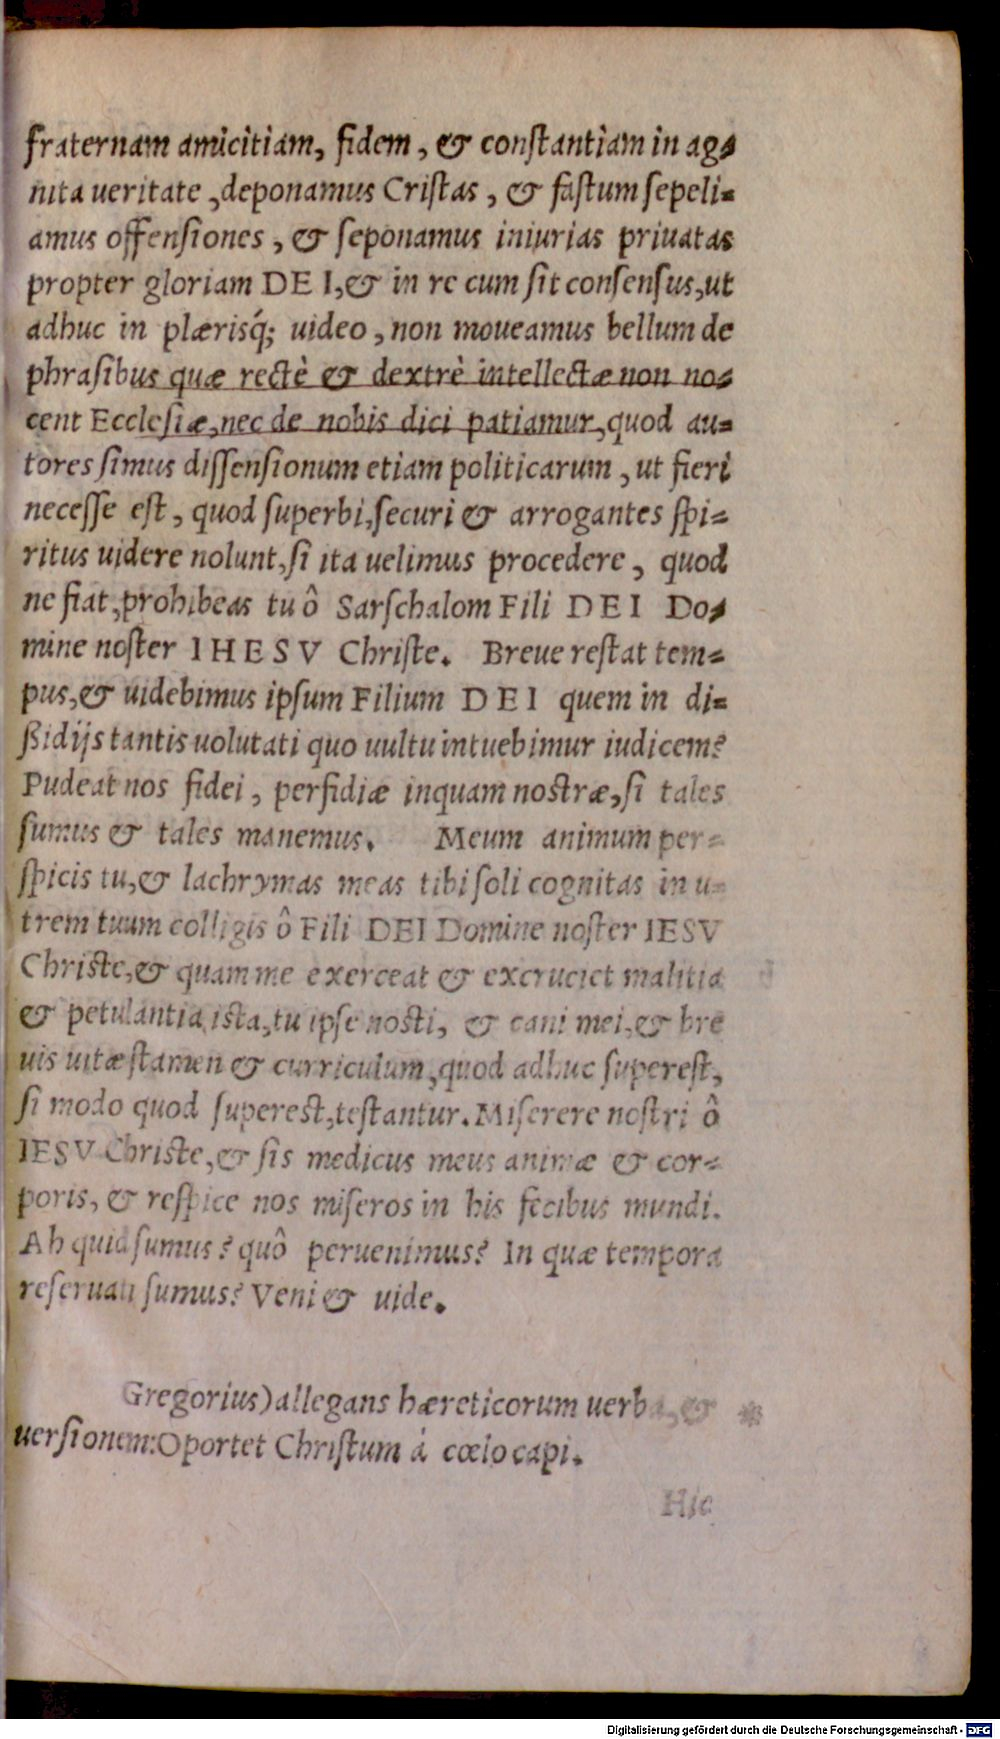 fraternam amicitiam, fidem, & constantiam in ag⸗
nita ueritate, deponamus Cristas, & fastum sepeli⸗
amus offensiones, & seponamus iniurias priuatas
propter gloriam DEI, & in re cum sit consensus, ut
adhuc in plærisq́; uideo, non moueamus bellum de
phrasibus quæ rectè & dextrè intellectæ non no⸗
cent Ecclesiæ, nec de nobis dici patiamur, quod au⸗
tores simus dissensionum etiam politicarum, ut fieri
necesse est, quod superbi, securi & arrogantes spi⸗
ritus uidere nolunt, si ita uelimus procedere, quod
ne fiat, prohibeas tu ô Sarschalom Fili DEI Do⸗
mine noster IHESV Christe. Breue restat tem⸗
pus, & uidebimus ipsum Filium DEI quem in di⸗
ßidijs tantis uolutati quo uultu intuebimur iudicem?
Pudeat nos fidei, perfidiæ inquam nostræ, si tales
sumus & tales manemus. Meum animum per⸗
spicis tu, & lachrymas meas tibi soli cognitas in u⸗
trem tuum colligis ô Fili DEI Domine noster IESV
Christe, & quam me exerceat & excruciet malitia
& petulantia ista, tu ipse nosti, & cani mei, & bre
uis uitæ stamen & curriculum, quod adhuc superest,
si modo quod superest, testantur. Miserere nostri ô
IESV Christe, & sis medicus meus animæ & cor⸗
poris, & respice nos miseros in his fecibus mundi.
Ah quid sumus? quô peruenimus? In quæ tempora
reseruati sumus? Veni & uide.
Gregorius) allegans hæreticorum uerba, & *
uersionem: Oportet Christum á cœlo capi.
Hic
Digitalisierung gefördert durch die Deutsche Forschungsgemeinschaft - DFG